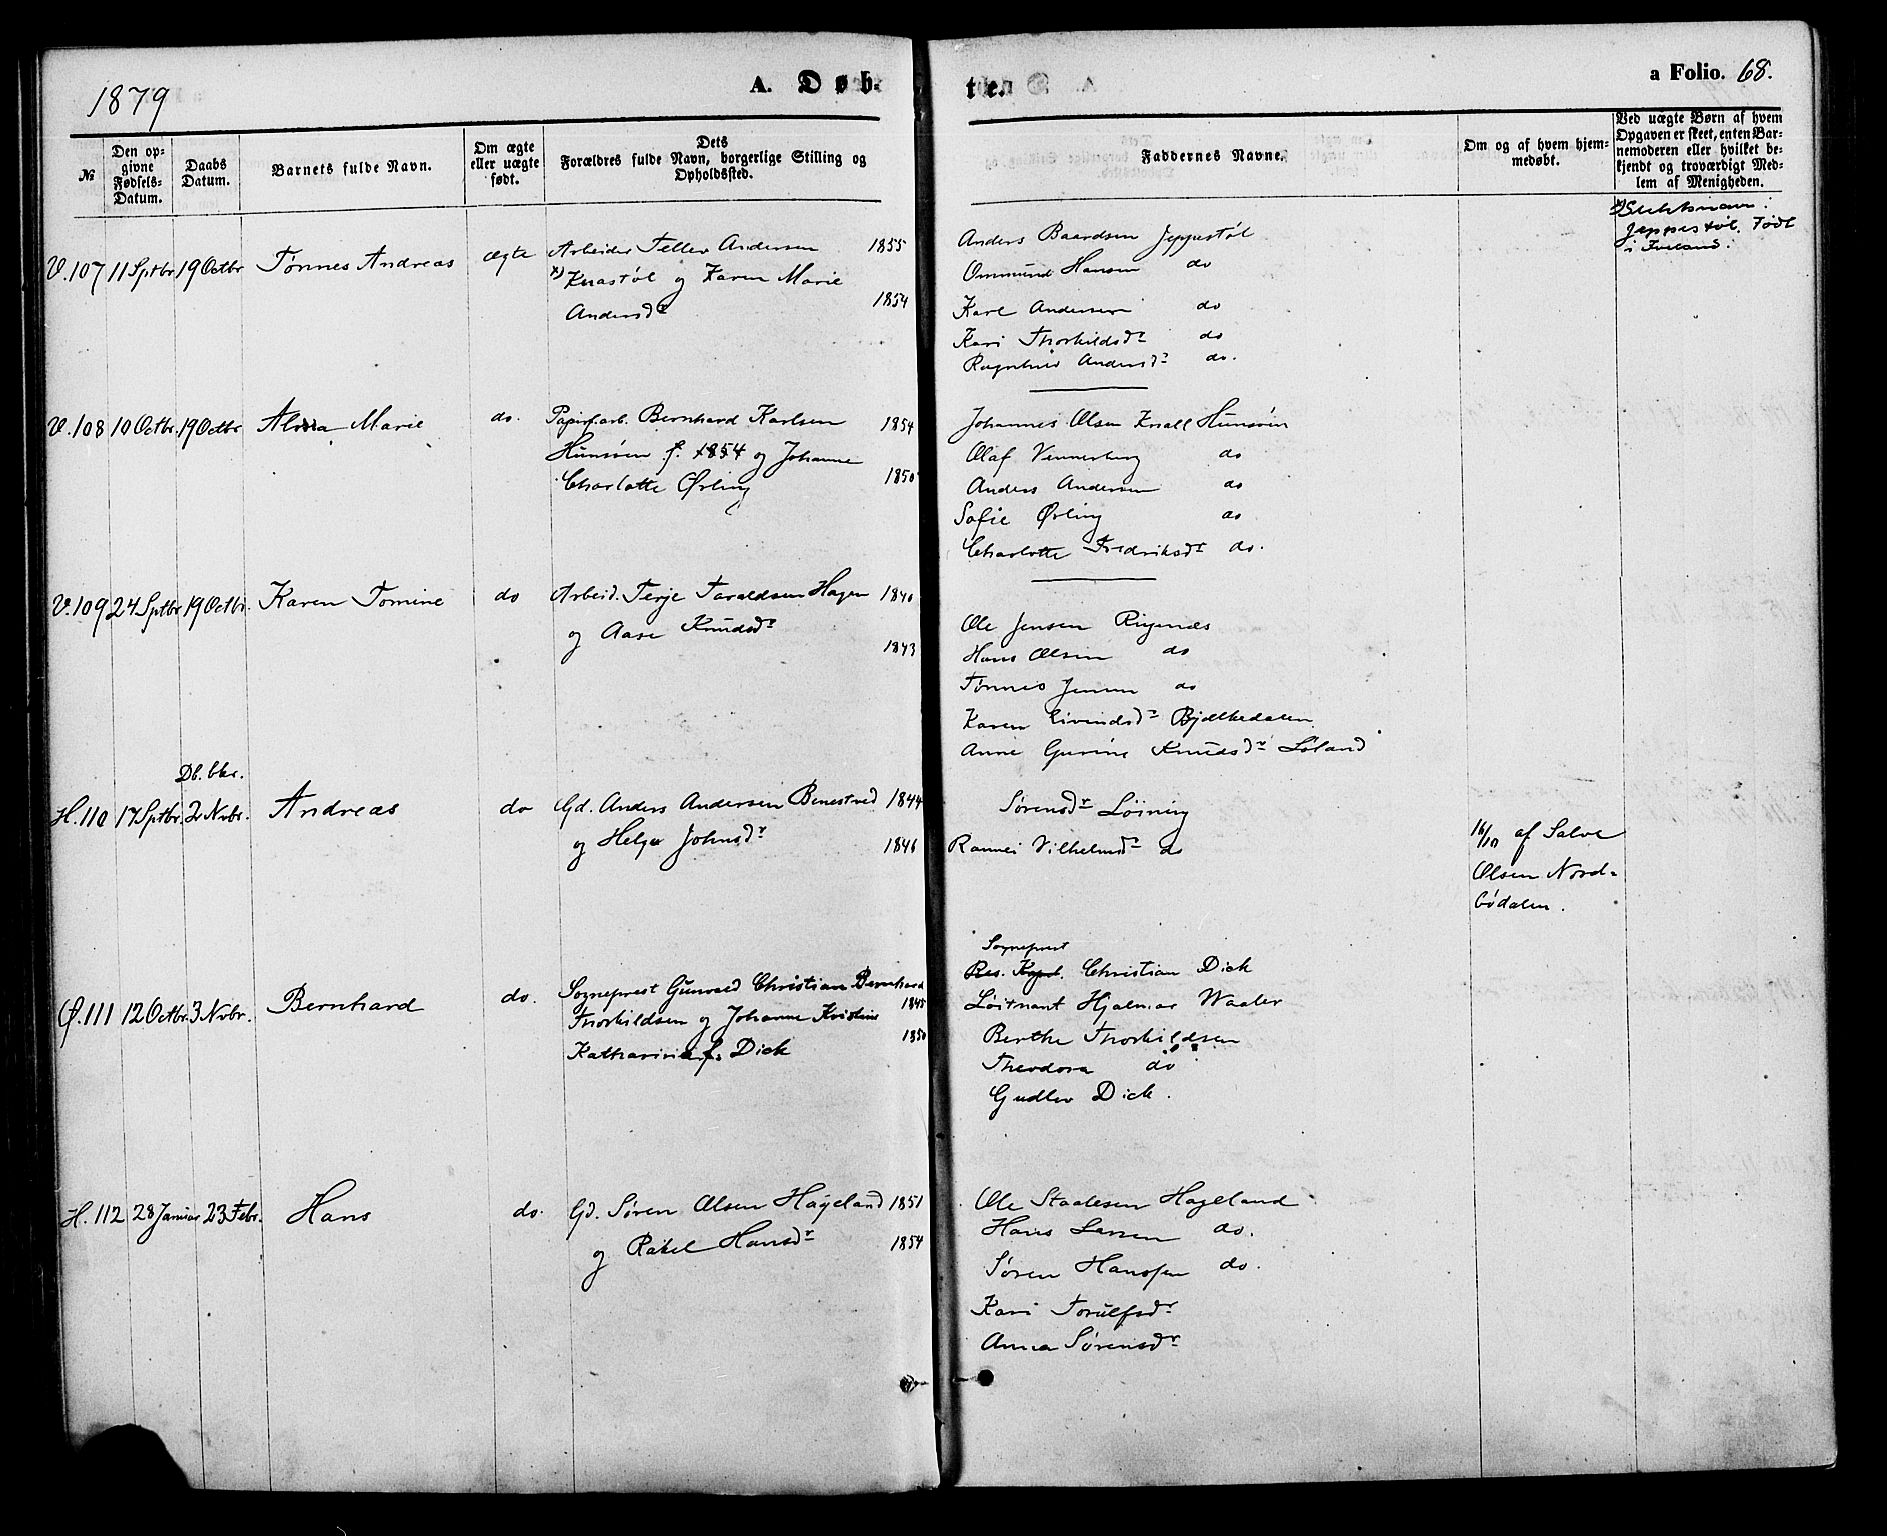 1879
A. Døb-
te.
a Folio. 68.
№
Den op-
givne
Fødsels-
Datum.
Daabs
Datum.
Barnets fulde Navn.
Om ægte
eller uægte
født.
Dets
Forældres fulde Navn, borgerlige Stilling og
Opholdssted.
Faddernes Navne.
Om og af hvem hjem-
medøbt.
Ved uægte Børn af hvem
Opgaven er skeet, enten Bar-
nemoderen eller hvilket be-
kjendt og troværdigt Med-
lem af Menigheden.
V. 107 11 Sptbr. 19 Octbr. Tønnes Andreas ægte
Arbeider Tellev Andersen 1855
x) Knastøl og Karen Marie
1854
Andersdr
Anders Baardsen Jeppestøl
Ommund Hansen do
Karl Andersen do
Kari Thorkildsdr do
Ragnhild Andersdr do.
Jeppestøl. Født
V. 108 10 Octbr. 19 Octbr. Alma Marie do.
Papirf.arb. Bernhard Karlsen 1854
Hunsøen f. 1854 og Johanne
1850
Charlotte Ørling
Johannes Olsen Knall Hunsøen
Olaf Vennerberg do
Anders Andersen do
Sofie Ørling do
Charlotte Fredriksdr do.
V. 109 24 Sptbr. 19 Octbr. Karen Tomine do
Arbeid. Terje Taraldsen Hagen 1840
og Aase Knudsdr
1843
Ole Jensen Rigenæs
Hans Olsen do
Tønnes Jensen do
Karen Eivindsdr Bjelkedalen
Anne Gurine Knudsdr Løland
Db. bkr.
H. 110 17 Sptbr. 2 Nvbr. Andreas do
Gd. Anders Andersen Benestved 1844
og Helga Johnsdr 1846
Sørensdr Løining
Rannei Vilhelmsdr do
16/10 af Salve
Olsen Nord-
bødalen.
Ø. 111 12 Octbr. 3 Nvbr. Bernhard do.
Sogneprest Gunvald Christian Bernhard
1845
Thorkildsen og Johanne Kristine
1850
Katharina f. Dick
Sogneprest
Res. Kapel. Christian Dick
Løitnant Hjalmar Waaler
Berthe Thorkildsen
Theodora do
Gudlev Dick.
H. 112 28 Januar 23 Febr. Hans do.
Gd. Søren Olsen Hageland 1851
og Rakel Hansdr 1854
Ole Staalesen Hageland
Hans Larsen do.
Søren Hanssen do.
Kari Torulfsdr
Anna Sørensdr